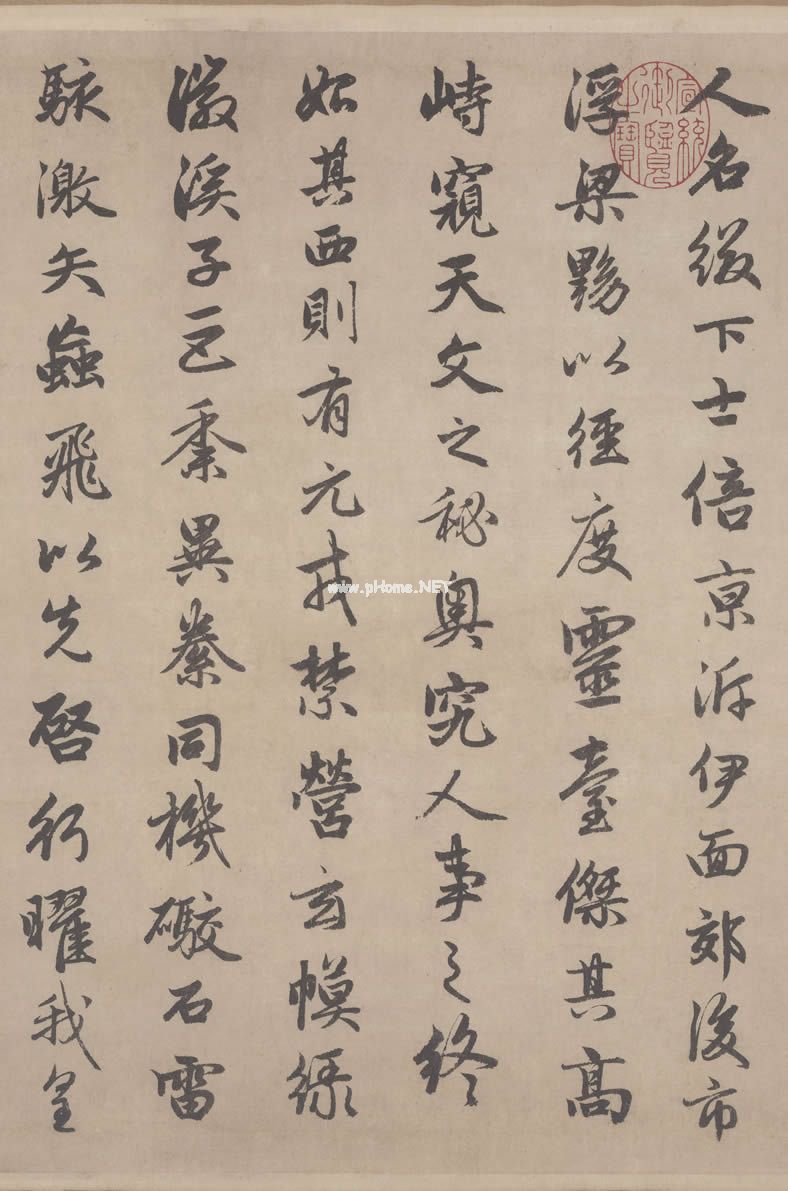 人名綴下士倍京泝伊面郊後市
浮梁黝以徑度靈臺傑其高
峙窺天文之秘奧究人事之終
始其西則有元戎禁營玄幙綠
徽溪子巨黍異絭同機礮石雷
駭激矢蝱飛以先啓行曜我皇
宣統御覽之寶
www.pHome.NET